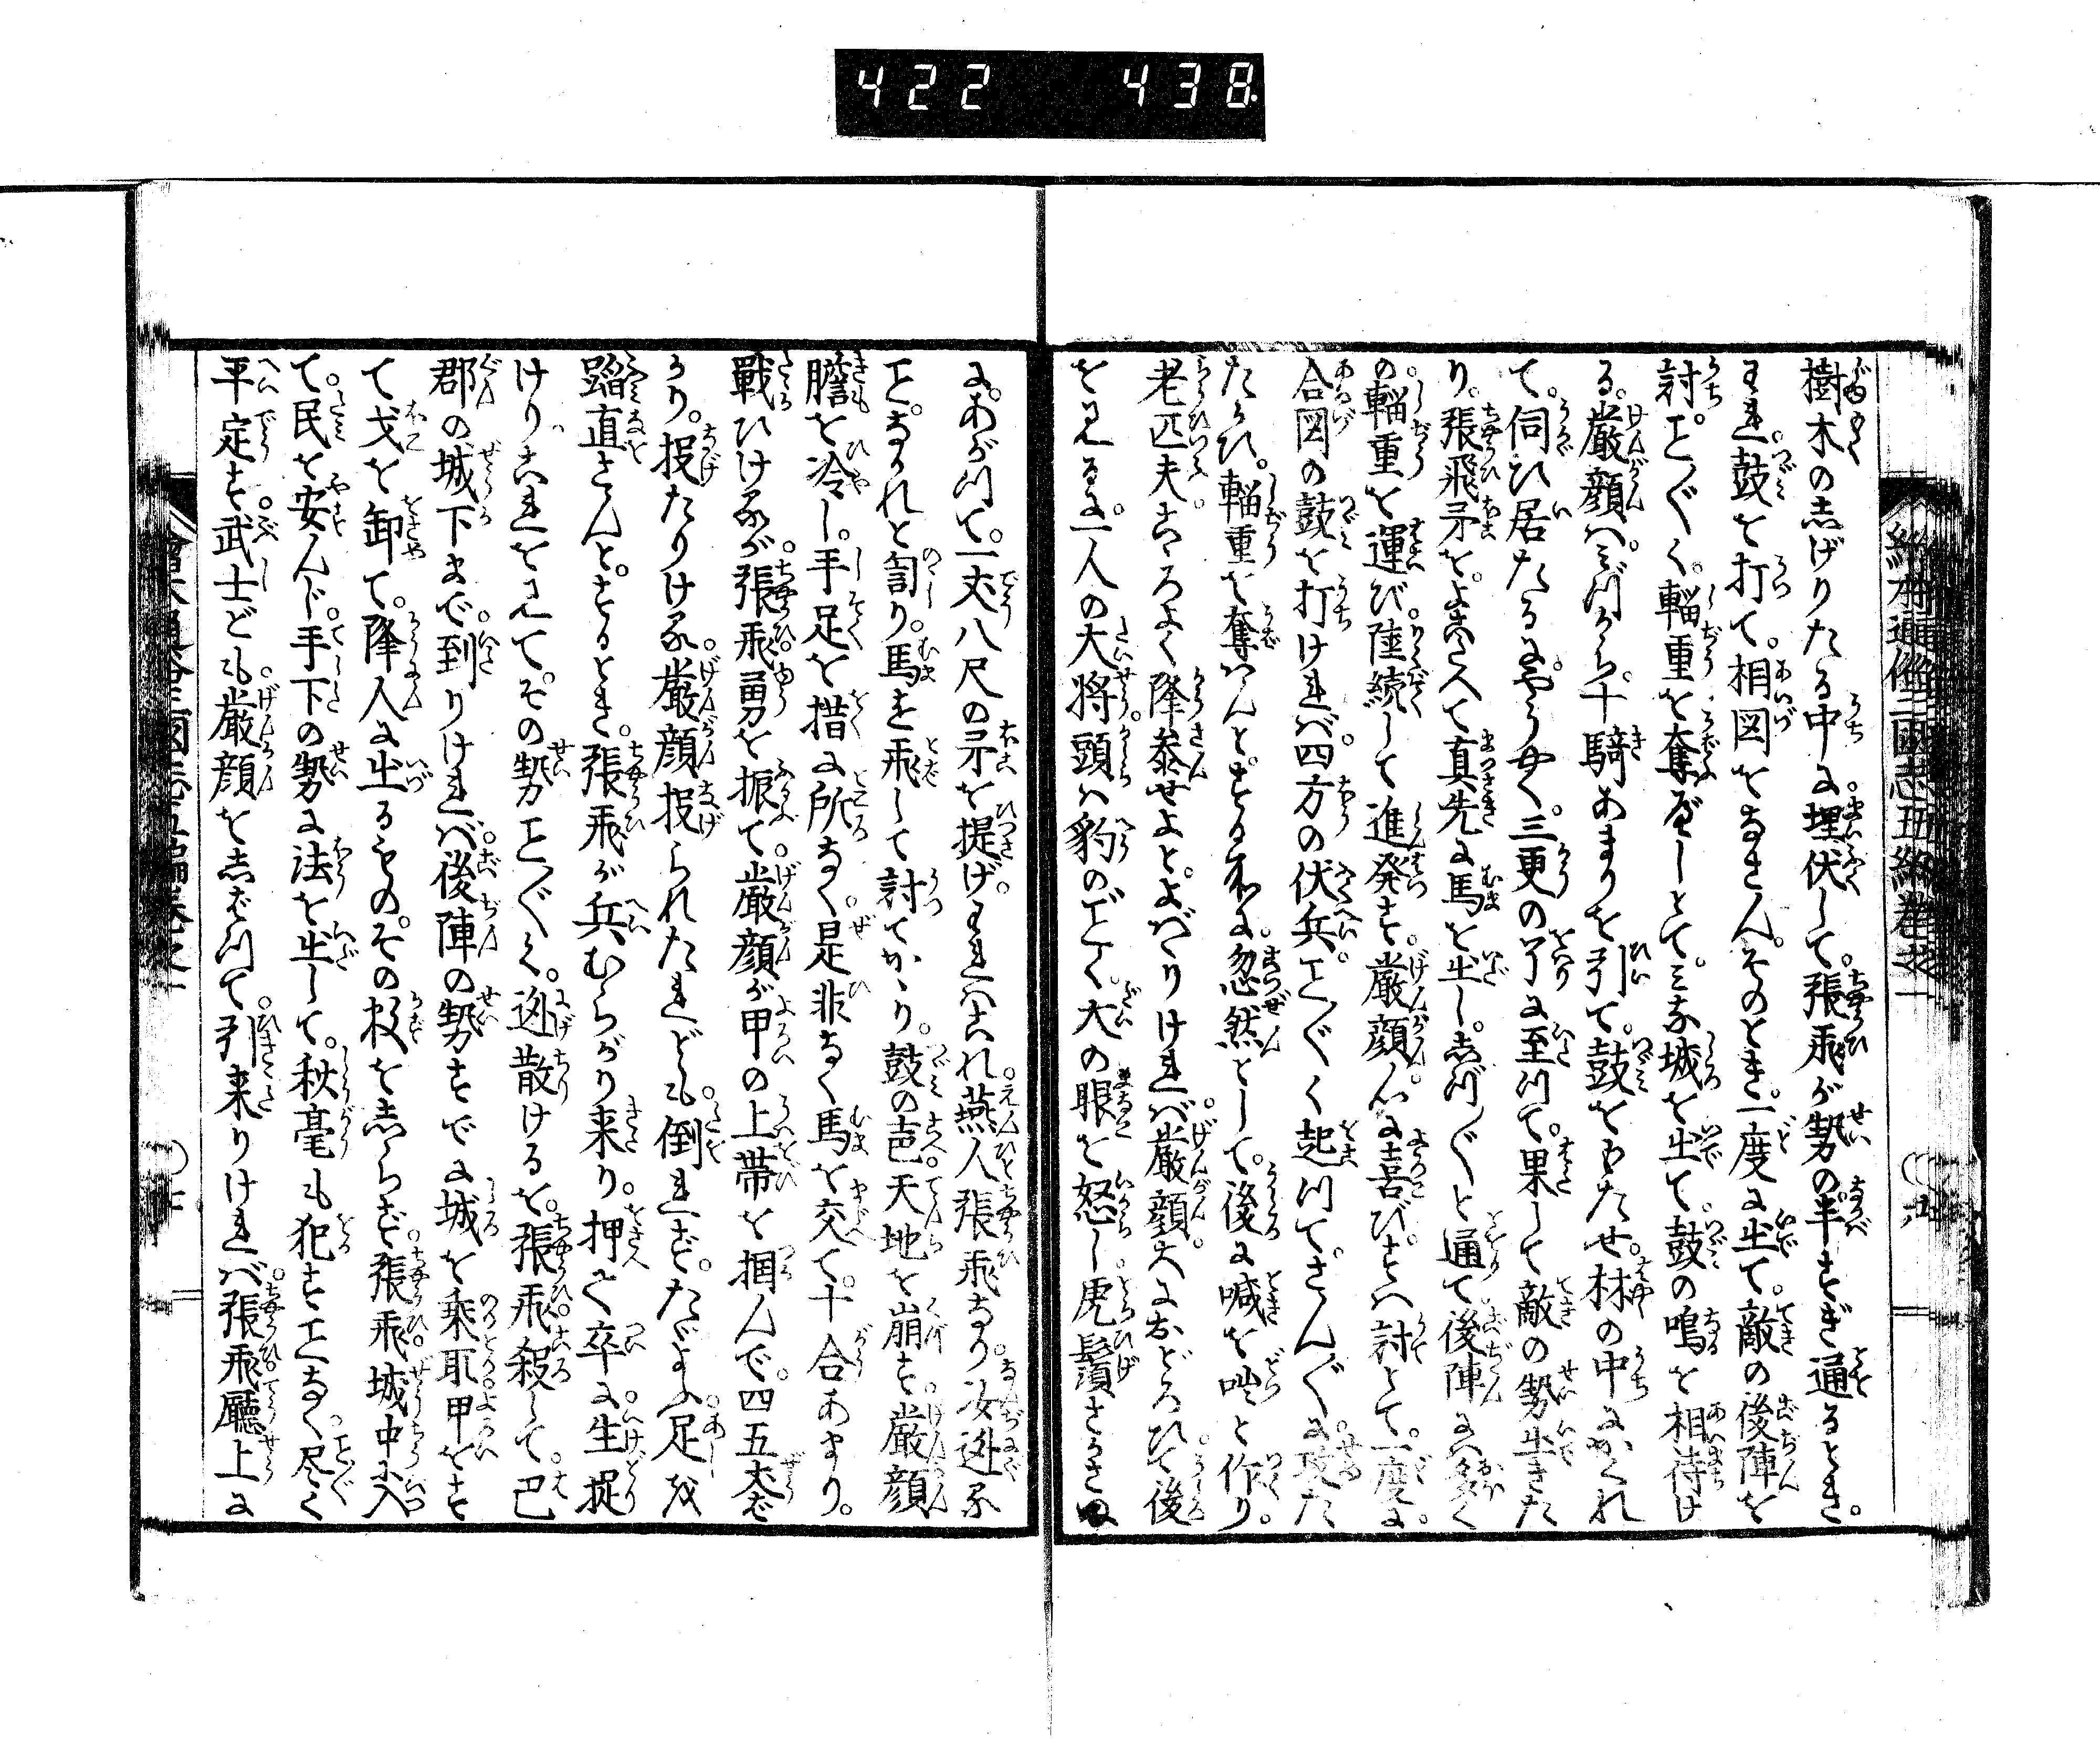 422 438
樹木の志げりたる中に埋伏して。張飛が勢の半すぎ通るとき。
われ鼓を打て。相図をなさん。そのとき一度に出て。敵の後陣を
討。ことごとく。輜重を奪べしとて。みな城を出て。鼓の鳴を相待け
る。厳顔ハ。みづから。十騎あまりを引て。鼓をもたせ。林の中にかくれ
て。伺ひ居たるに。やうやく。三更の了に至つて。果して敵の勢出きた
り。張飛矛をよこたへて真先に馬を出し。志づ〱と通て。後陣に多く
の。輜重を運び。陸続して進発す。厳顔。心に喜び。すハ討とて。一度に。
合図の鼓を打けれバ。四方の伏兵。ことごとく起つて。さん〲に。攻た
たかひ。輜重を奪ハんとする所に。忽然として。後に喊を咄と作り。
老匹夫。こころよく降参せよと。よバりけれバ。厳顔。大におどろひて後
をみるに。一人の大将。頭ハ豹のごとく。大の眼を怒し。虎鬚さかさま
に。あがつて。一丈八尺の矛を提げ。われハこれ燕人張飛なり。汝逃る
ことなかれと罵り。馬を飛して討てかゝり。鼓の声天地を崩す。厳顔
膽を冷し。手足を措に所なく。是非なく馬を交て。十合あまり。
戦ひけるが。張飛勇を振て。厳顔が甲の上帯を掴んで。四五丈ば
かり。投たりける。厳顔投られたれども。倒れず。たゞよふ足を
蹈直さんと。するとき。張飛が兵むらがり来り。押て卒に生捉
けり。これをみて。その勢ことごとく。逃散けるを。張飛。殺して。巴
郡の城下まで。到りけれバ。後陣の勢すでに城を乗取。甲をす
て戈を卸て。降人に出るもの。その数を志らず。張飛城中に入
て。民を安んじ。手下の勢に法を出して。秋毫も犯すことなく。尽く
平定す。武士ども。厳顔を志ばつて。引来りけれバ。張飛廳上に